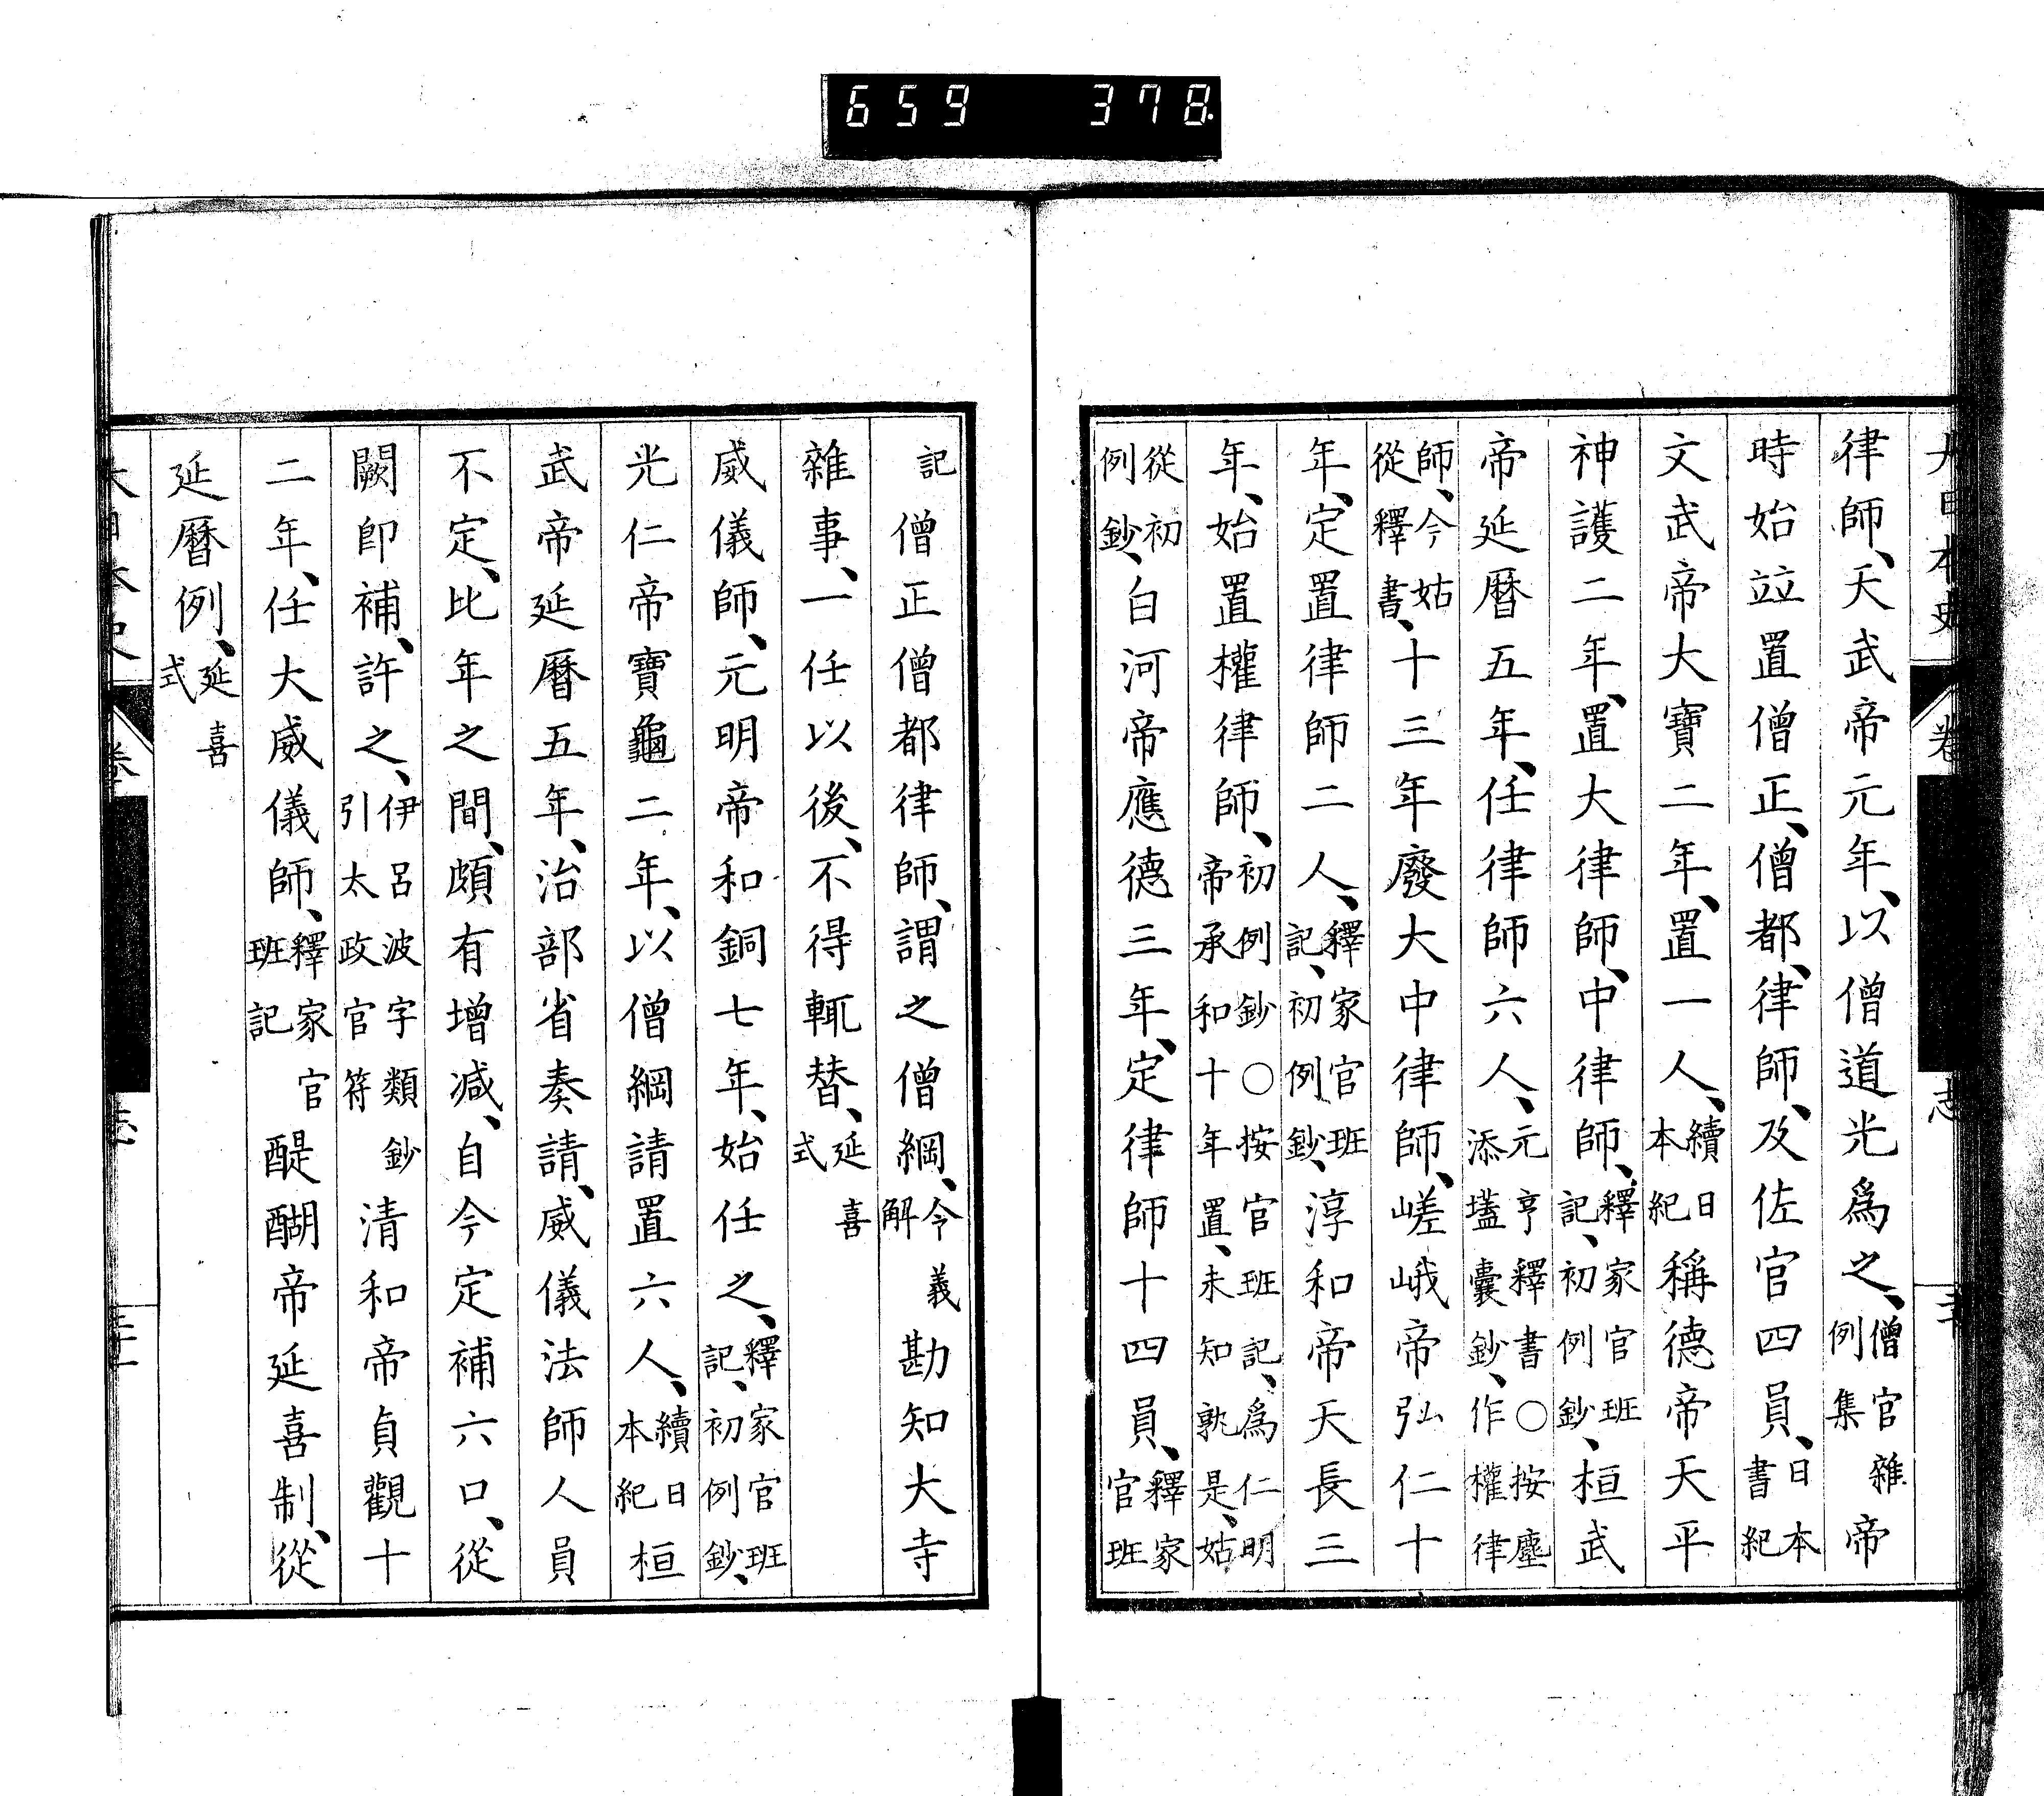 律師、天武帝元年、以僧道光爲之、僧官雜例集帝
時始竝置僧正、僧都、律師、及佐官四員、日本書紀
文武帝大寶二年、置一人、續日本紀稱德帝天平
神護二年、置大律師、中律師、釋家官班記、初例鈔、桓武
帝延曆五年、任律師六人、元亨釋書○按塵添壒囊鈔、作權律
師、今姑從釋書、十三年廢大中律師、嵯峨帝弘仁十
年、定置律師二人、釋家官班記、初例鈔、淳和帝天長三
年、始置權律師、初例鈔○按官班記、爲仁明帝承和十年置、未知孰是、姑
從初例鈔、白河帝應德三年、定律師十四員、釋家官班
記僧正僧都律師、謂之僧綱、令義解勘知大寺
雜事、一任以後、不得輒替、延喜式
威儀師、元明帝和銅七年、始任之、釋家官班記、初例鈔、
光仁帝寶龜二年、以僧綱請置六人、續日本紀桓
武帝延曆五年、治部省奏請、威儀法師人員
不定、比年之間、頗有增減、自今定補六口、從
闕卽補、許之、伊呂波字類鈔引太政官符清和帝貞觀十
二年、任大威儀師、釋家官班記醍醐帝延喜制、從
延曆例、延喜式
659 378